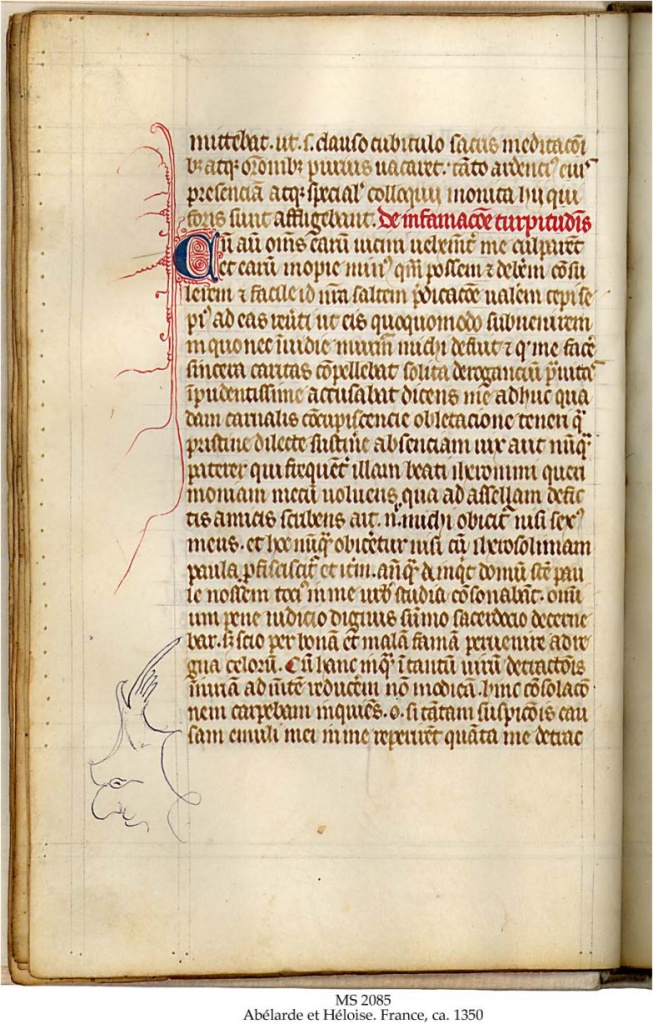 mittebat. ut. s. clauso cubitulo sacris meditacōi
bꝫ atqꝫ orōnibꝫ purius uacaret. tāto ardenciꝰ eiꝰ
presenciā atqꝫ special' colloquii monita hii qui
foris sunt affligebant. De infamacōe turpitudīs
Cū aū om̄s earū uicini uehem̄t' me culparēt
et earū inopie minꝰ qm̄ possem ⁊ deb'em cōsu
lerem ⁊ facile id nr̄a saltem p̄dicacōe ualem cepi se
piꝰ ad eas reūti ut eis quoquomodo subuenirem
in quo nec īuidie murm̄ michi defuit ⁊ q' me fac'e
sincera caritas cōpellebat solita deroganciū p̄uitaˢ
īpudentissime accusabat dicens me adhuc qua
dam carnalis cōcupiscencie oblectacione teneri qͣ
pristine dilecte sustin'e absenciam uix aut nūqͣ
paterer qui frequent' illam beati iheronimi queri
moniam mecū uoluens, qua ad assellam defic
tis amicis scribens ait. n'. michi obicit' nisi sexꝰ
meus. et hoc nūqͣ obic'etur nisi cū iherosolimam
paula pfiscisc̄it' et it'm. an̄qͣ domū sc̄e pau
le nossem tociꝰ in me urb' studia cōsonabāt. omī
um pene iudicio dignus sūmo sacerdocio decerne
bar. sꝫ scio per bonā et malā famā peruenire ad re
gna celorū. Cū hanc inqͣ ī tantū uirū detractōis
iniuriā ad mēte reducerem nō modicā. hinc cōsolacō
nem carpebam inquiēs. o. si tātam suspicōis cau
sam emuli mei in me reperirēt quāta me detrac
MS 2085
Abélarde et Héloise. France, ca. 1350